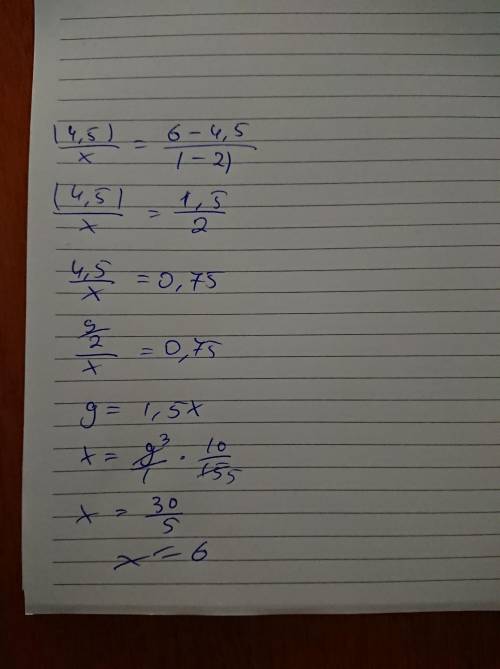 (4,5)/x = 6-4,5/(-2)
(4,5)/x = 1,5/2
4,5/x = 0,75
9/2/x = 0,75
9 = 1,5x
x = 9³/1 · 10/155
x = 30/5
x = 6